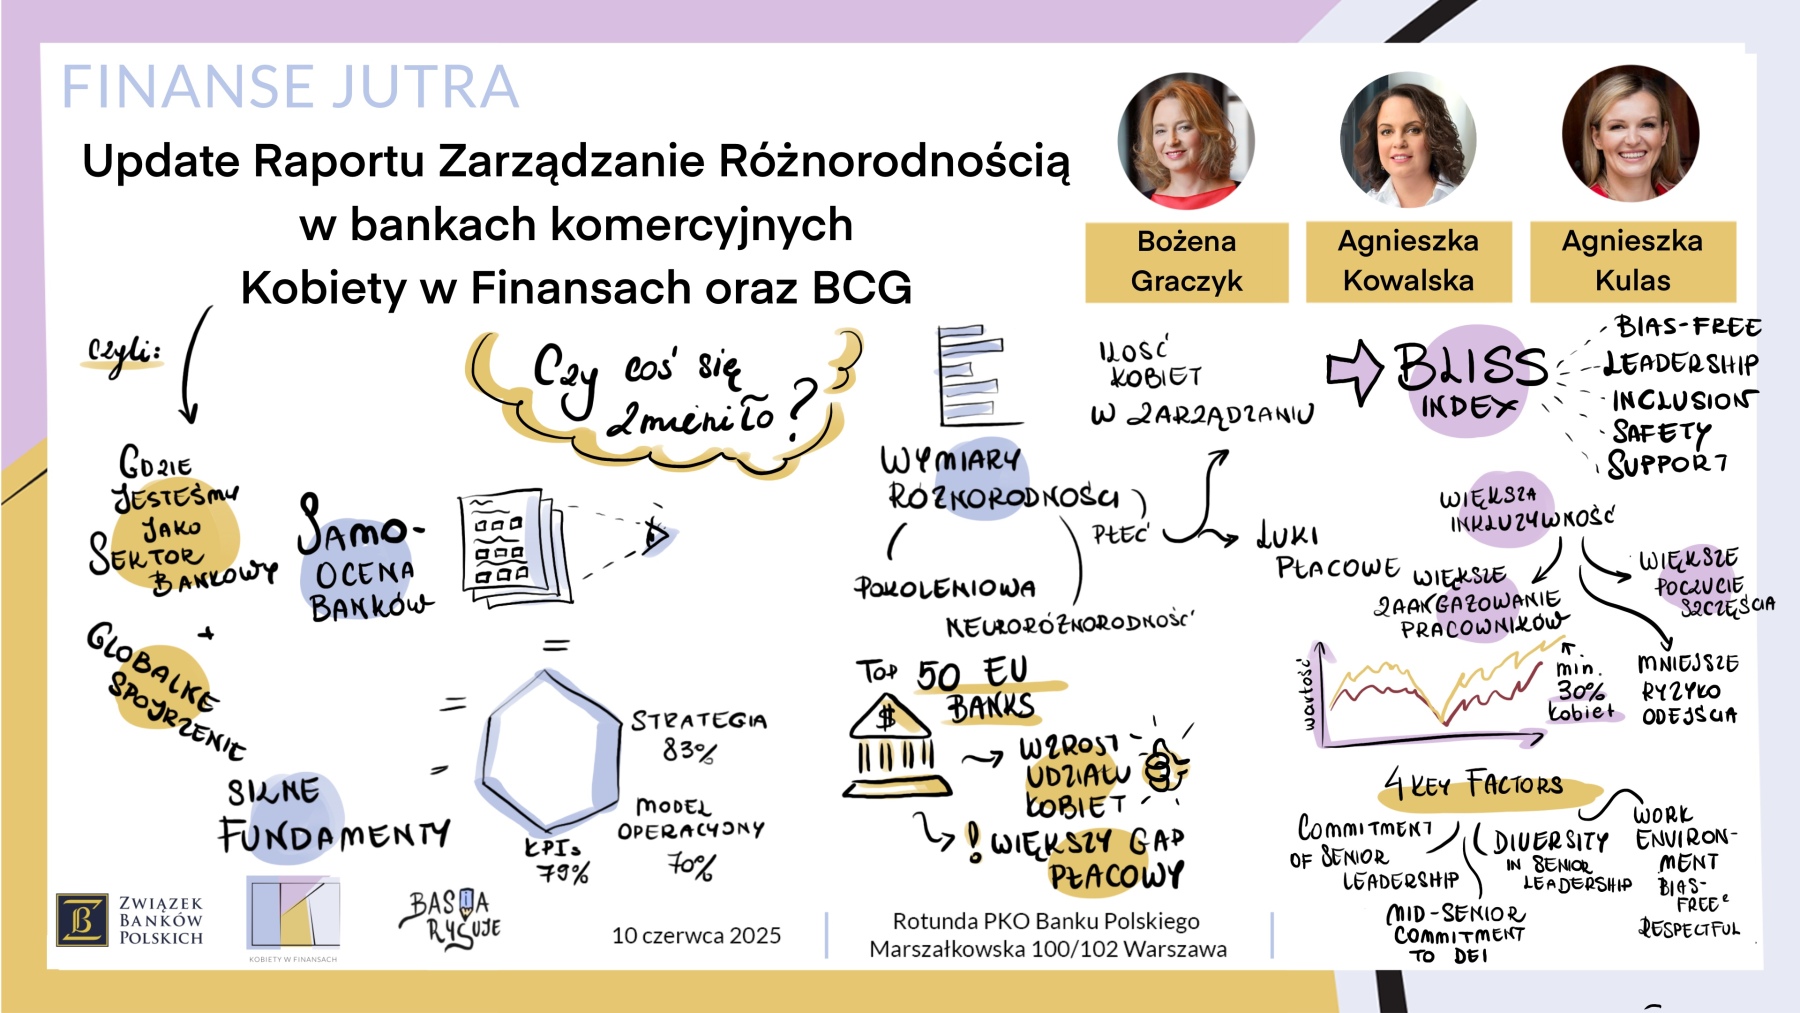 FINANSE JUTRA
Update Raportu Zarządzanie Różnorodnością
w bankach komercyjnych
Kobiety w Finansach oraz BCG
Bożena
Graczyk
Agnieszka
Kowalska
Agnieszka
Kulas
czyli:
GDZIE
JESTEŚMY
JAKO
SEKTOR
BANKOWY
+
GLOBALNE
SPOJRZENIE
Czy coś się
zmieniło?
SAMO-
OCENA
BANKÓW
=
=
=
SILNE
FUNDAMENTY
STRATEGIA
83%
MODEL
OPERACYJNY
70%
KPIs
79%
WYMIARY
RÓŻNORODNOŚCI
POKOLENIOWA
NEURORÓŻNORODNOŚĆ
PŁEĆ
ILOŚĆ
KOBIET
W ZARZĄDZANIU
LUKI
PŁACOWE
TOP 50 EU
BANKS
$
WZROST
UDZIAŁU
KOBIET
! WIĘKSZY GAP
PŁACOWY
BLISS
INDEX
BIAS-FREE
LEADERSHIP
INCLUSION
SAFETY
SUPPORT
WIĘKSZA
INKLUZYWNOŚĆ
WIĘKSZE
ZAANGAŻOWANIE
PRACOWNIKÓW
WIĘKSZE
POCZUCIE
SZCZĘŚCIA
MNIEJSZE
RYZYKO
ODEJŚCIA
wartość
min.
30%
kobiet
4 KEY FACTORS
COMMITMENT
OF SENIOR
LEADERSHIP
MID-SENIOR
COMMITMENT
TO DEI
DIVERSITY
IN SENIOR
LEADERSHIP
WORK
ENVIRON-
MENT
BIAS-
FREE
RESPECTFUL
ZWIĄZEK
BANKÓW
POLSKICH
KOBIETY W FINANSACH
BASIA
RYSUJE
10 czerwca 2025
Rotunda PKO Banku Polskiego
Marszałkowska 100/102 Warszawa